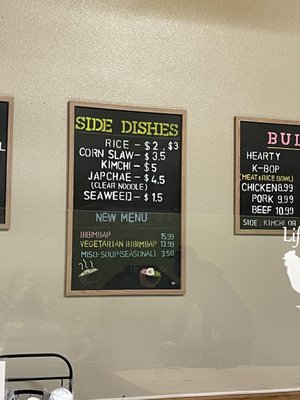 SIDE DISHES
RICE - $2, $3
CORN SLAW - $3.5
KIMCHI - $5
JAPCHAE - $4.5
(CLEAR NOODLE)
SEAWEED - $1.5
NEW MENU
BIBIMBAP 15.99
VEGETARIAN BIBIMBAP 13.99
MISO-SOUP(SEASONAL) 3.50
BUL
HEARTY
K-BOP
(MEAT & RICE BOWL)
CHICKEN 8.99
PORK 9.99
BEEF 10.99
SIDE: KIMCHI OR
Lif